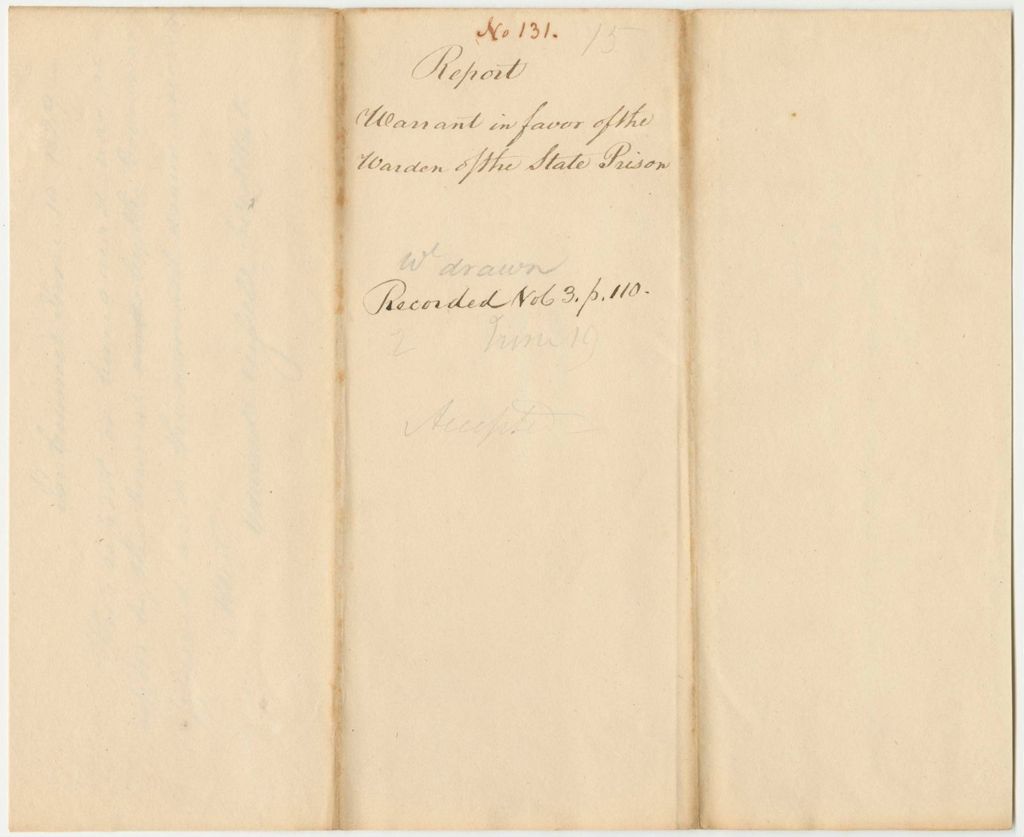 No 131. 15
Report
Warrant in favor of the
Warden of the State Prison
Wt drawn
Recorded Vol 3. p. 110.
2 June 19
Accepted